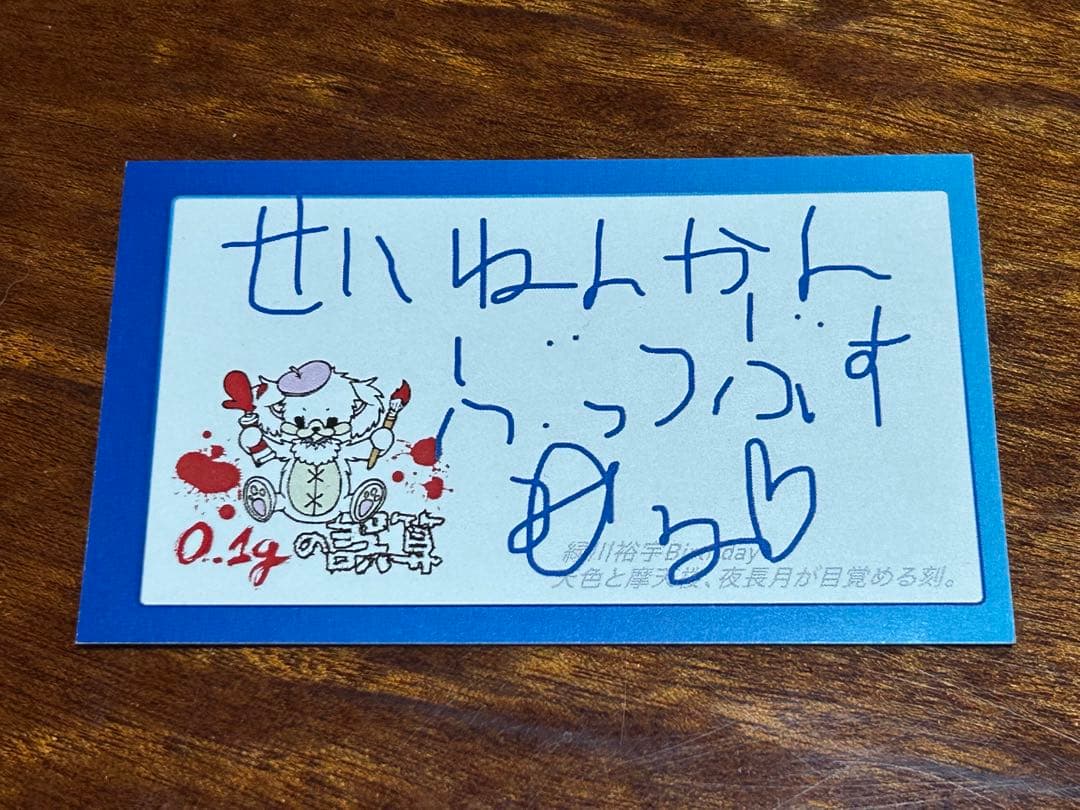 せいねんかん
ぶっつぶす
める♡
0.1gの誤算
緑川裕宇Birthday
天色と摩天楼、夜長月が目覚める刻。